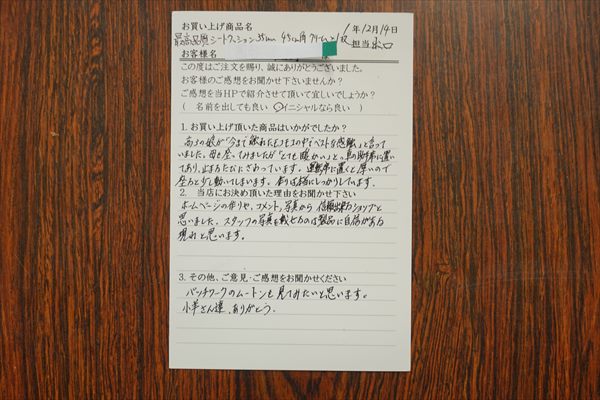 お買い上げ商品名
年12月14日
最高品質シートクッション35cm 45cm角 クリーム 1枚
担当 出口
お客様名
様
この度はご注文を賜り、誠にありがとうございました。
お客様のご感想をお聞かせ下さいませんか?
ご感想を当HPで紹介させて頂いて宜しいでしょうか?
( 名前を出しても良い イニシャルなら良い )
1. お買い上げ頂いた商品はいかがでしたか?
高3の娘が「今まで触れたモフモフの中でベストな感触」と言って
いました。母も座ってみましたが「とても暖かい」と。車の助手席に置い
てあり、止まるたびにさわっています。運転席に置くと厚いので
座ると少し動いてしまいます。創りは本当にしっかりしています。
2. 当店にお決め頂いた理由をお聞かせ下さい
ホームページの作りや、コメント、写真から信頼出来るショップと
思いました。スタッフの写真を載せるのは製品に自信がある
現れと思います。
3. その他、ご意見・ご感想をお聞かせください
パッチワークのムートンも見てみたいと思います。
小羊さん達、ありがとう。